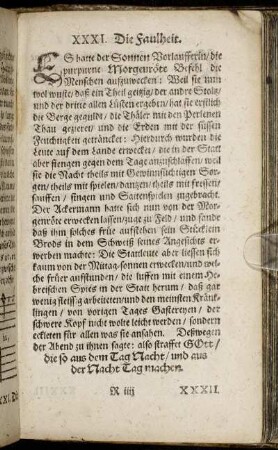 XXXI. Die Faulheit.
ES hatte der Sonnen Vorlaufferin/ die
purpurne Morgenröte Befehl die
Menschen auffzuwecken: Weil sie nun
wol wuste/ daß ein Theil geitzig/ der andre Stoltz/
und der dritte allen Lüsten ergeben/ hat sie erstlich
die Berge gegüldt/ die Thäler mit den Perlenen
Thau gezieret/ und die Erden mit der süssen
Feuchtigkeit getränckt: Hierdurch wurden die
Leute auf dem Lande erwecket/ die in der Statt
aber fiengen gegen dem Tage anzuschlaffen/ weil
sie die Nacht theils mit Gewinnsüchtigen Sor-
gen/ theils mit spielen/ dantzen/ theils mit fressen/
sauffen/ singen und Saitenspielen zugebracht.
Der Ackermann hatte sich nun von der Mor-
genröte erwecken lassen/ zuge zu Feld/ und fande
daß ihm solches früe aufstehen sein Stücklein
Brods in dem Schweiß seines Angesichts er-
werben machte: Die Stattleute aber liessen sich
kaum von der Mittag-sonnen erwecken/ und wel-
che früer auffstunden/ die luffen mit einem He-
breischen Spies in der Statt herum/ daß gar
wenig fleissig arbeiteten/ und den meinsten Kränk-
lingen/ von vorigen Tages Gastereyen/ der
schwere Kopf nicht wolte leicht werden/ sondern
eckleten für allen was sie ansahen. Deßwegen
der Abend zu ihnen sagte: also straffet GOtt/
die so aus dem Tag Nacht/ und aus
der Nacht Tag machen.
R iiij XXXII.